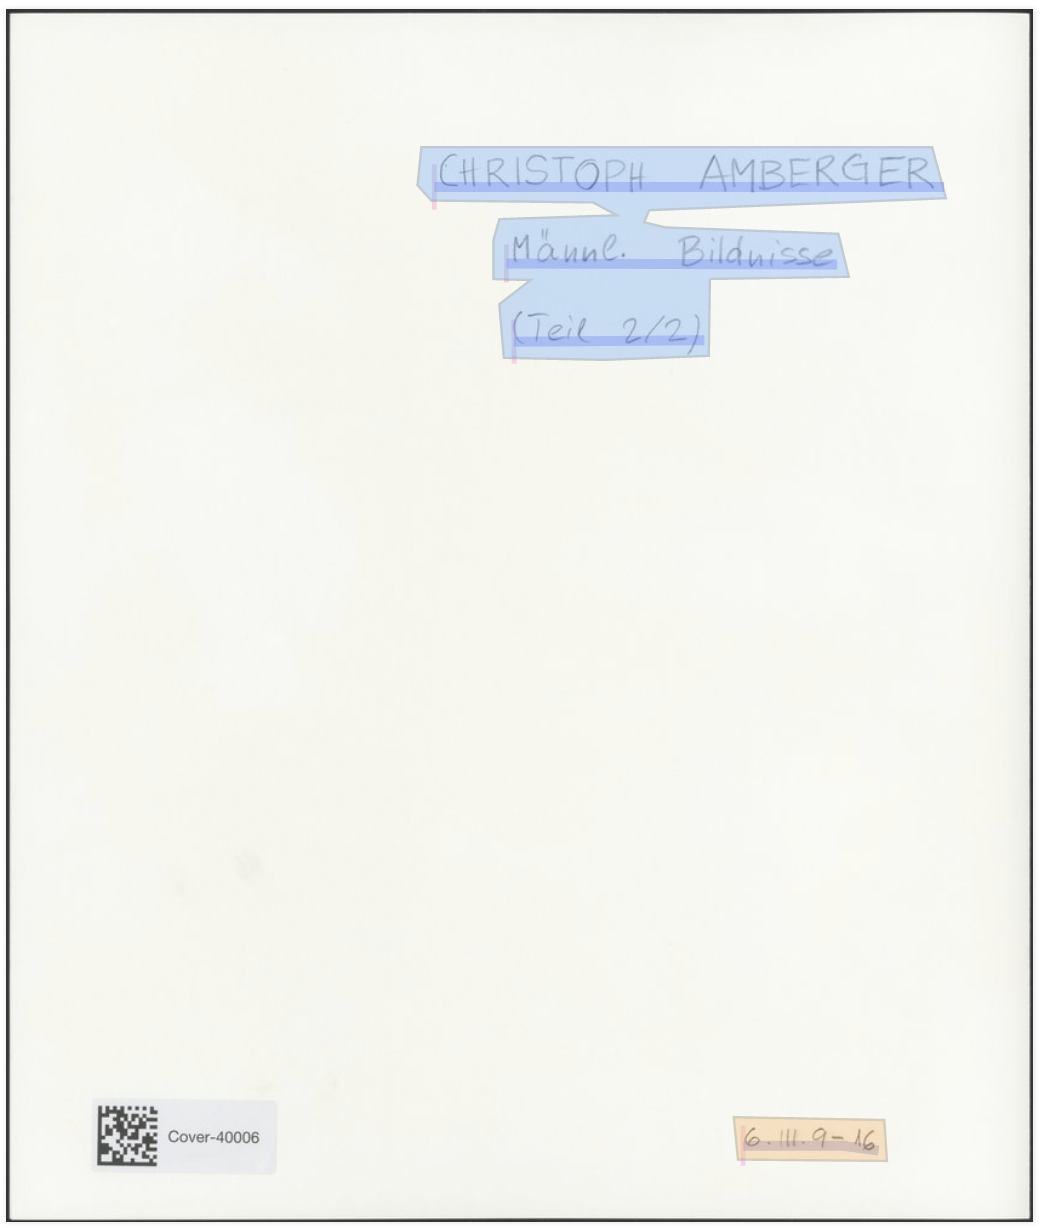 CHRISTOPH AMBERGER
Männl. Bildnisse
(Teil 2/2)
Cover-40006
6.III.9-16